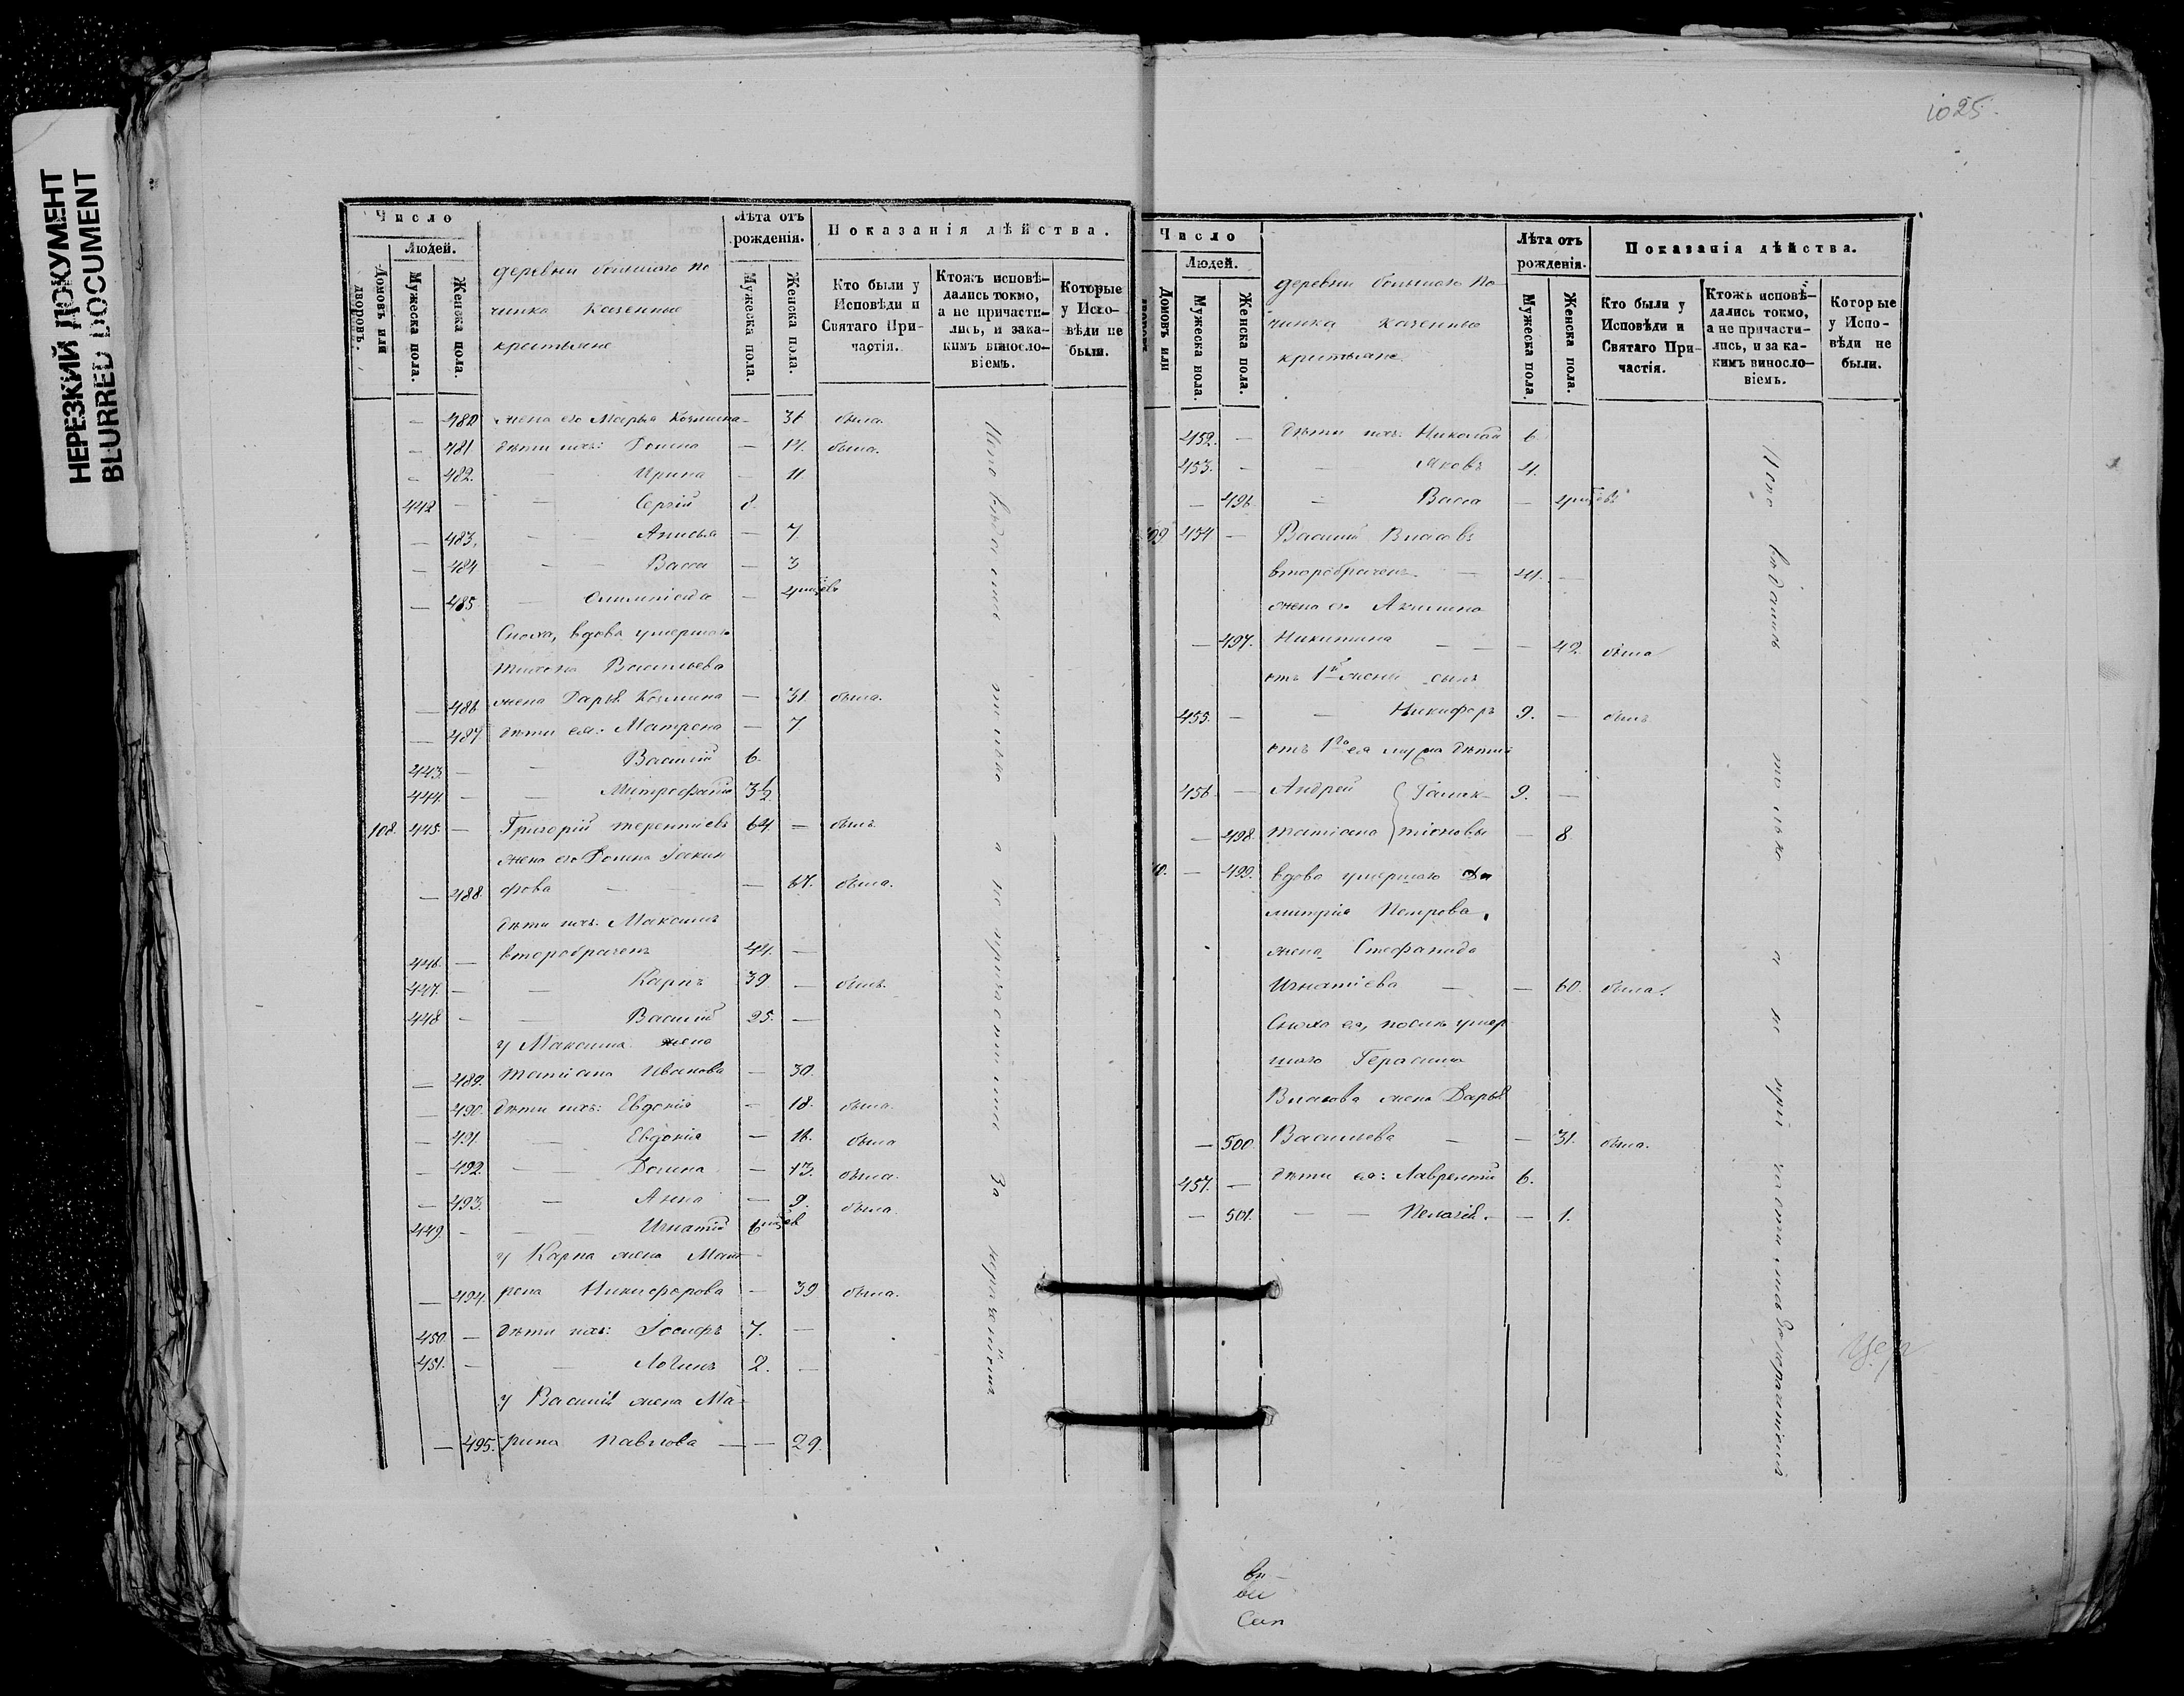 НЕРЕЗКИЙ ДОКУМЕНТ
BLURRED DOCUMENT
Число
Людей.
Домовъ или дворовъ.
Мужеска пола.
Женска пола.
деревни большаго по
чинка казенные
крестьяне
Лѣта отъ рожденія.
Мужеска пола.
Женска пола.
Показанія дѣйства.
Кто были у Исповѣди и Святаго При-частія.
Ктожъ исповѣ-дались токмо, а не причасти-лись, и за ка-кимъ виносло-віемъ.
Которые у Испо-вѣди не были.
— 480 жена его Марья Козмина — 36 была.
— 481 дѣти ихъ: Домна — 14. была.
— 482. Ирина — 11.
442 — — Сергій 8.
— 483. — — Анисья — 7.
— 484 — — Васса — 3
— 485 — Олимпіада — 4 мцевъ
Сноха, вдова умершаго
Тихона Васильева
— 486. жена Дарья Козмина — 31. была.
— 487. дѣти ея: Матрона — 7.
443. — — Василій 6.
444. — — Митрофанъ 3½
108. 445. — Григорій Терентіевъ 64 — былъ
жена его Домна Іакин
— 488. фова — — 67. была.
дѣти ихъ: Максимъ
446. — второбраченъ 44. —
447. — — Карпъ 39 — былъ.
448 — — Василій 25. —
у Максима жена
— 489. Татіана Иванова — 30.
— 490. дѣти ихъ: Евдокія — 18. была.
— 491. — Евдокія — 16. была
— 492. — — Домна — 13. была.
— 493. — Анна — 9. была.
449. — — — Игнатій 6 мцевъ
у Карпа жена Мат-
— 494. рона Никифорова — 39 была.
450. — дѣти ихъ: Іосифъ 7. —
451. — — Логинъ 2. —
у Василія жена Ма-
— 495. рина Павлова — — 29.
а не причастились За нерачѣніемъ
1025.
Число
Людей.
Домовъ или
Мужеска пола.
Женска пола.
деревни большаго По-
чинка казенные
крестьяне.
Лѣта отъ рожденія.
Мужеска пола.
Женска пола.
Показанія дѣйства.
Кто были у Исповѣди и Святаго При-частія.
Ктожъ исповѣ-дались токмо, а не причасти-лись, и за ка-кимъ виносло-віемъ.
Которые у Испо-вѣди не были.
452. — дѣти ихъ: Николай 6
453. — — Яковъ 4.
— 496. — Васса — 4 мцевъ
109 454 — Василій Власовъ
второбраченъ — 44. —
жена его Акилина
— 497. Никитина — — — 42. была
отъ 1й жены сынъ
455. — — Никифоръ 9. — былъ
отъ 1го ея мужа дѣти
456. — Андрей 9. —
— 498. Татіана — 8
10. — 499. вдова умершаго Ди
митрія Петрова,
жена Стефанида
Игнатіева — — 60. была.
Сноха ея, послѣ умер
шаго Герасима
Власова жена Дарья
— 500. Васильева — — 31. была.
457. — дѣти ея: Лаврентій 6.
— 501. — — Пелагія. — 1.
а не причастились За нераченіемъ